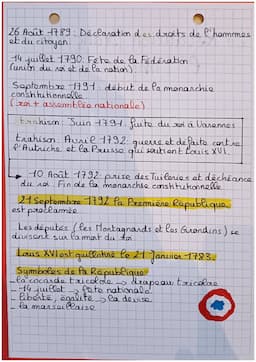 26 Août 1789: Déclaration des droits de l'hommes
et du citoyen.
14 juillet 1790. Fête de la Fédération
(union du roi et de la nation).
Septembre 1791, début de la monarchie
constitutionnelle.
(roi + assemblée nationale)
trahison: Juin 1791, fuite du roi à Varennes
trahison. Avril 1792: guerre et défaite contre
l'Autriche et la Prusse qui soutient Louis XVI.
→ 10 Août 1792 prise des Tuileries et déchéance
du roi. Fin de la monarchie constitutionnelle.
21 Septembre 1792 la Première République
est proclamée
Les députés (les Montagnards et les Girondins) se
divisent sur la mort du roi.
Louis XVI est guillotiné le 21 Janvier 1783.
Symboles de la République
- la cocarde tricolore → drapeau tricolore
- 14 juillet → fête nationale
- liberté, égalité → la devise
- la marseillaise